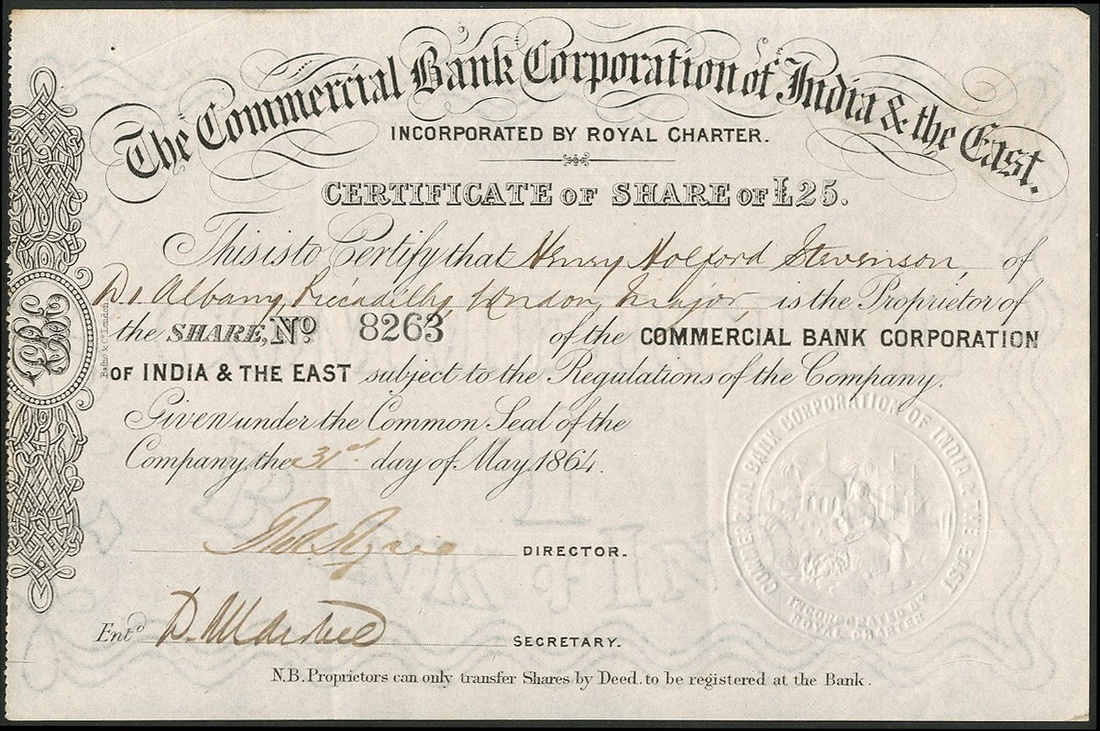 The Commercial Bank Corporation of India & the East.
INCORPORATED BY ROYAL CHARTER.
CERTIFICATE OF SHARE OF £25.
This is to Certify that Henry Holford Stevenson, of
D1 Albany, Piccadilly, London, Major, is the Proprietor of
the SHARE, No 8263 of the COMMERCIAL BANK CORPORATION
OF INDIA & THE EAST subject to the Regulations of the Company.
Given under the Common Seal of the
Company, the 31st day of May, 1864.
DIRECTOR.
Entd D. SECRETARY.
N.B. Proprietors can only transfer Shares by Deed to be registered at the Bank.
COMMERCIAL BANK CORPORATION OF INDIA & THE EAST
INCORPORATED BY
ROYAL CHARTER